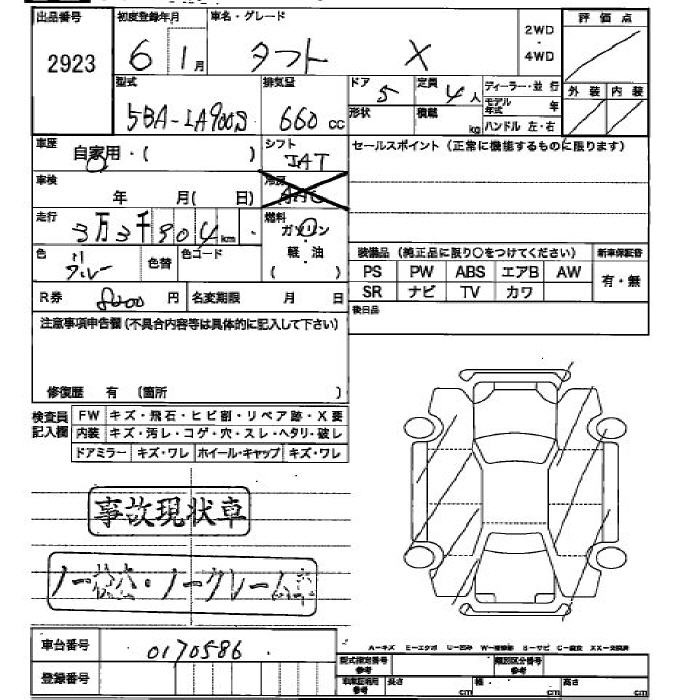 出品番号 初度登録年月 車名・グレード 2WD・4WD 評価点
2923 6 1月 タフト X
型式 排気量 ドア 定員 ディーラー・並行 外装 内装
5BA-LA900S 660 cc 5 4人 モデル年式 年
形状 積載 kg ハンドル 左・右
車歴 自家用・( ) シフト セールスポイント (正常に機能するものに限ります)
IAT
車検 年 月( 日) 冷房
走行 3万3千904km 燃料
ガソリン・軽油
色 色替 色コード ( )
装備品 (純正品に限り○をつけてください) 新車保証書
PS PW ABS エアB AW 有・無
SR ナビ TV カワ
R券 8200円 名変期限 月 日 後日品
注意事項申告欄 (不具合内容等は具体的に記入して下さい)
修復歴 有 (箇所 )
検査員記入欄 FW キズ・飛石・ヒビ割・リペア跡・X要
内装 キズ・汚レ・コゲ・穴・スレ・ヘタリ・破レ
ドアミラー キズ・ワレ ホイール・キャップ キズ・ワレ
事故現状車
ノー検査・ノークレーム車
車台番号 0170586
A-キズ E-エクボ U-凹み W-補修跡 S-サビ C-腐食 XX-交換済
型式指定番号参考 類別区分番号参考
登録番号 車庫証明用参考 長さ cm 幅 cm 高さ cm